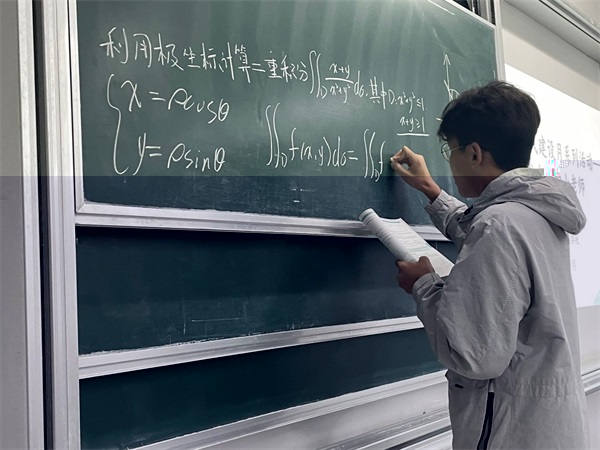 利用极坐标计算二重积分∬_D (x+y)/(x²+y²) dσ, 其中D: x²+y²≤1
x+y≥1
{ x=ρcosθ
y=ρsinθ
∬_D f(x,y)dσ=∬_D f
建设月系列活动
老师